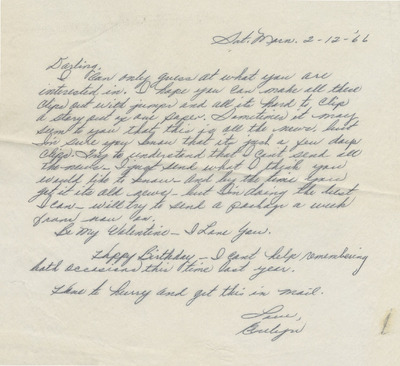 Sat. Morn. 2-12-'66
Darling,
I can only guess at what you are
interested in. I hope you can make all these
clips out with jumps and all, its hard to clip
a story put in one paper. Sometimes it may
seem to you that this is all the news, but
I'm sure you know that its just a few days
clips. Try to understand that I can't send all
the news. I just send what I think you
would like to know. And by the time you
get it its old news - but I'm doing the best
I can - will try to send a package a week
from now on.
Be My Valentine - I Love You.
Happy Birthday - I can't help remembering
both occasions this time last year.
Have to hurry and get this in mail.
Love,
Evelyn